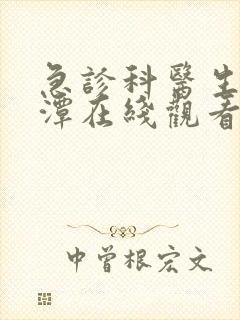 急診科醫生
潭在綫觀看
中曾根宏文